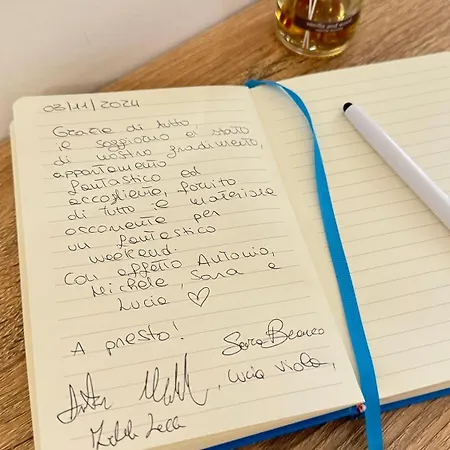 03/11/2024
Grazie di tutto
e soggiorno è stato
di nostro gradimento,
appartamento
fantastico ed
accogliente, fornito
di tutto e materiale
occorrente per
un fantastico
weekend.
Con affetto Antonio,
Michele, Sara e
Lucia ♡
A presto!
Sara Bianco
Lucia Viola,